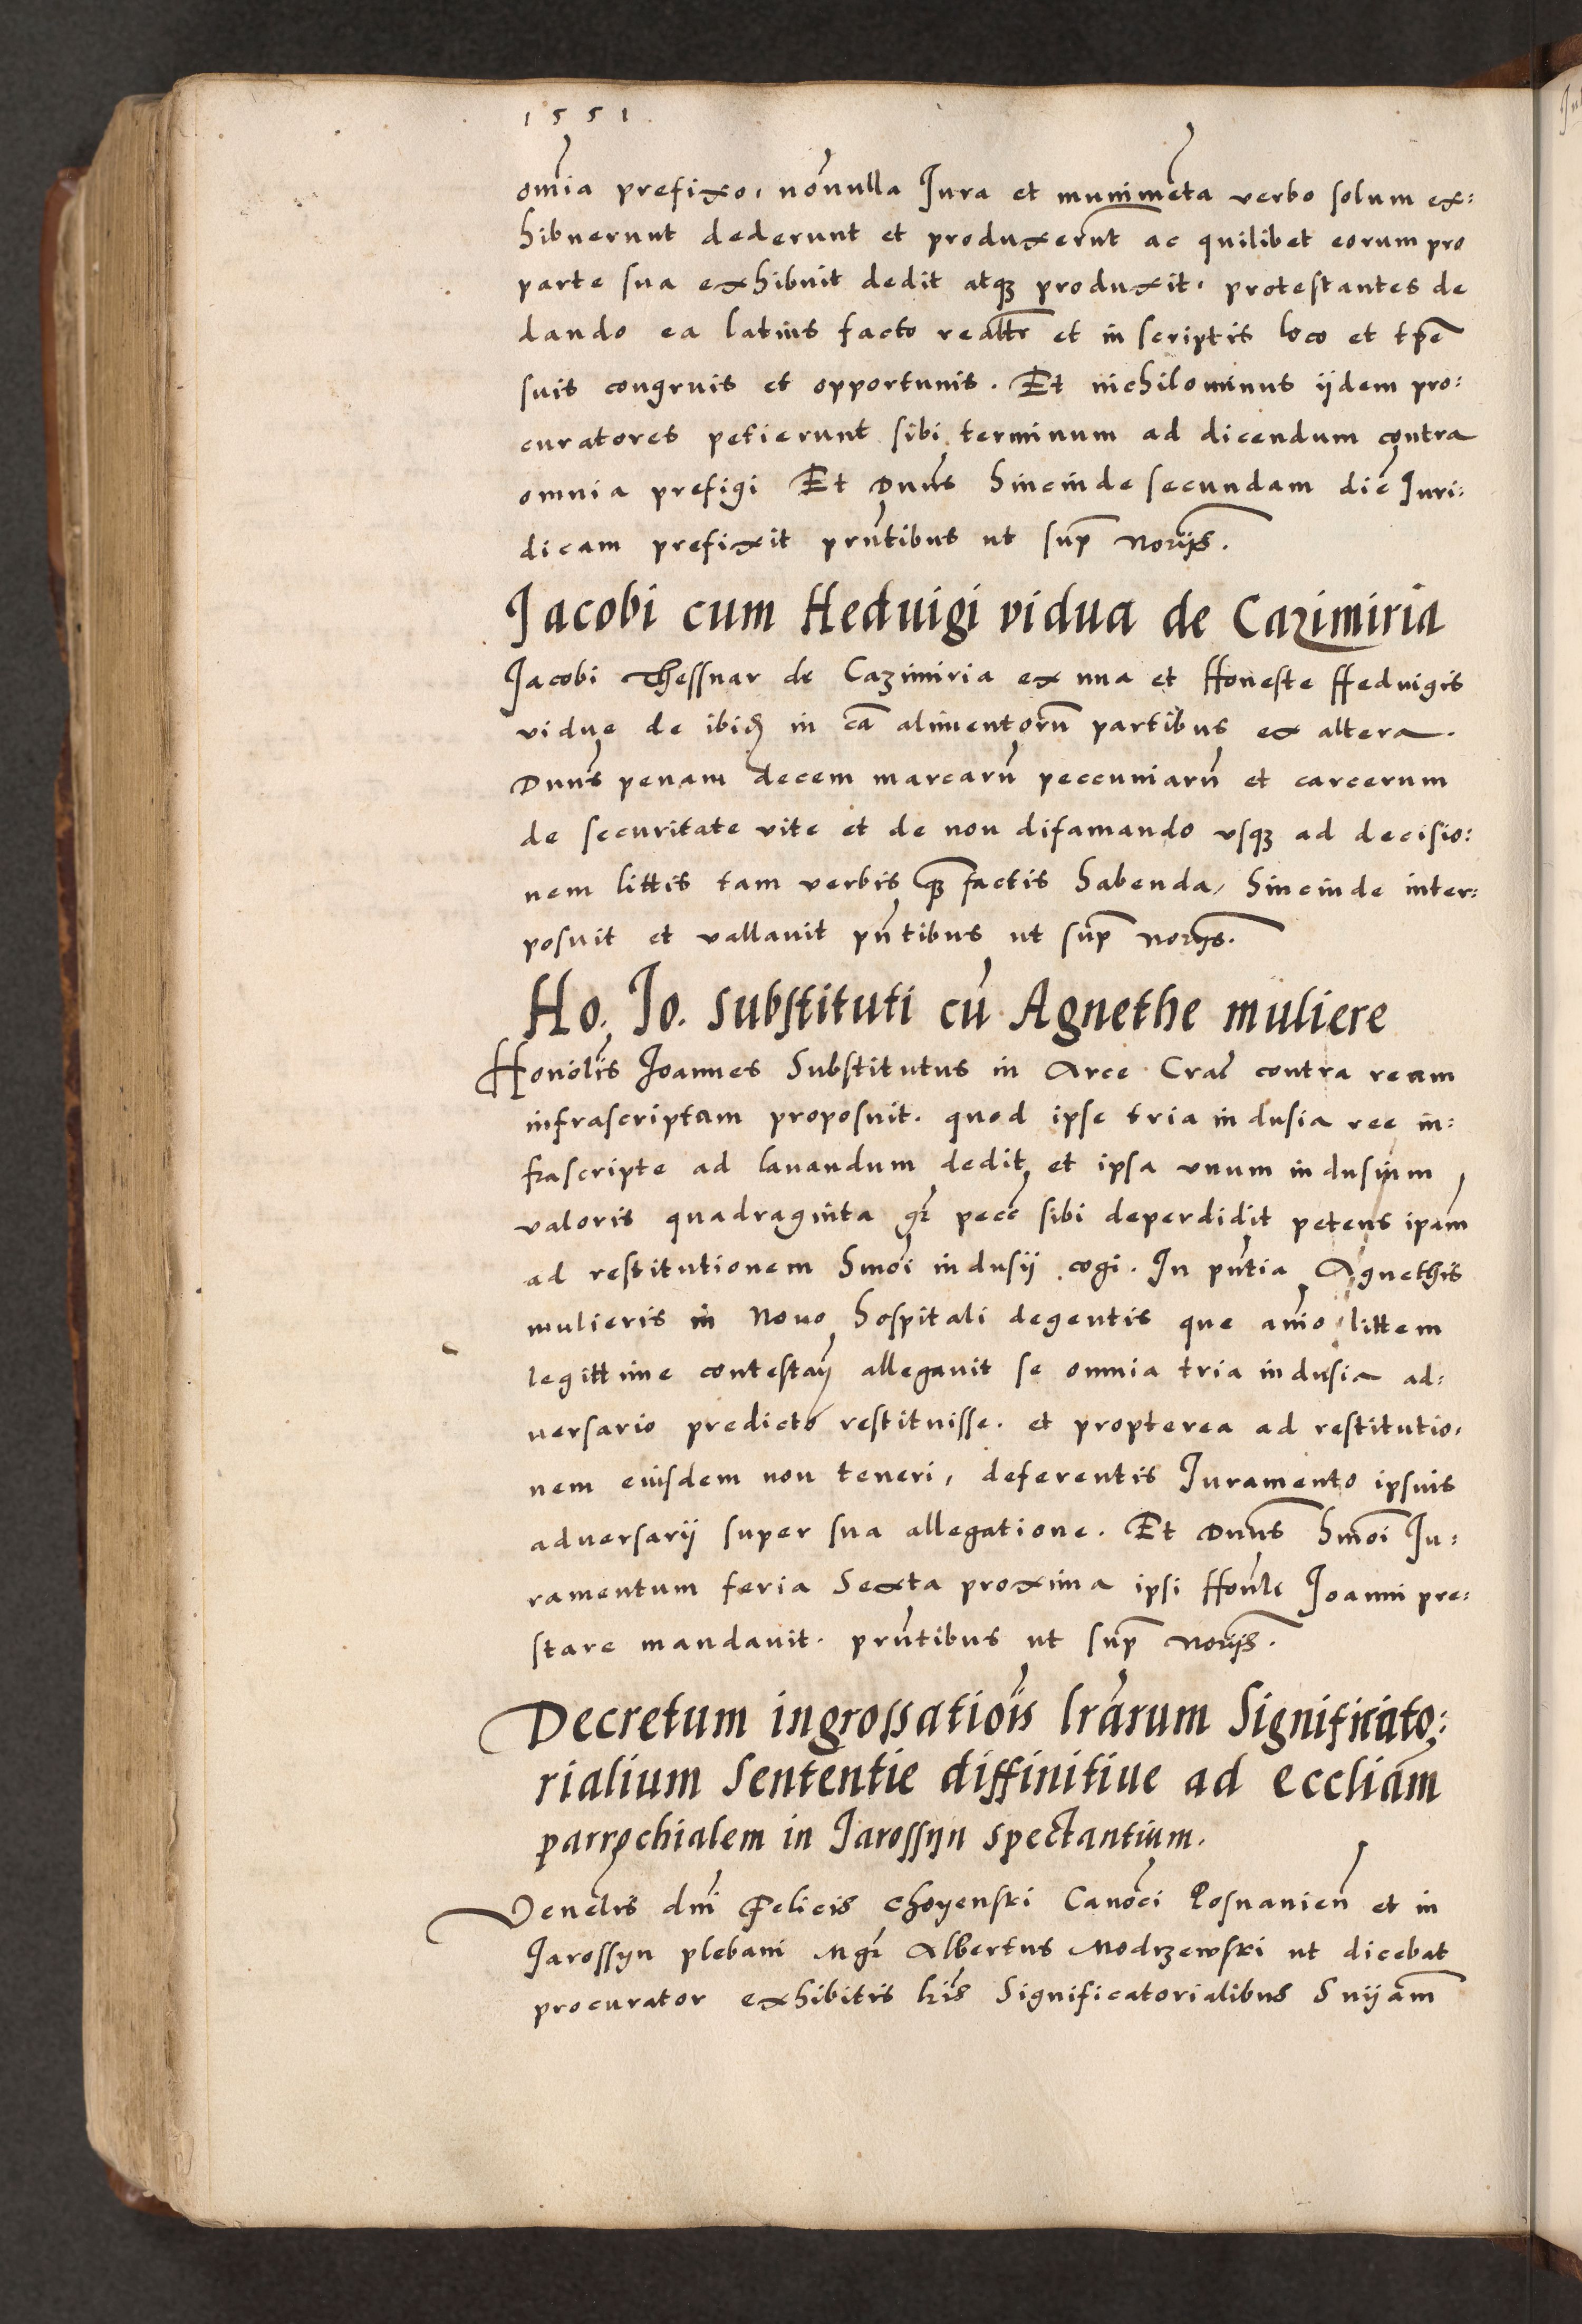 1551
om̃ia prefixo, nõnulla Jura et munimẽta verbo solum ex:
hibuerunt dederunt et produxerũt ac quilibet eorum pro
parte sua exhibuit dedit atqz produxit. protestantes de
dando ea latius facto realtr̃ et in scriptis loco et tp̃e
suis congruis et opportunis. Et nichilominus ijdem pro:
curatores petierunt sibi terminum ad dicendum contra
omnia prefigi Et Dnũs hincinde secundam diẽ Juri:
dicam prefixit prñtibus ut sup̃ Norijs̃.
Jacobi cum Heduigi vidua de Cazimiria
Jacobi Thessnar de Cazimiria ex una et Honeste Heduigis
vidue de ibid̃ in cã alimentorũ partibus ex altera.
Dnũs penam decem marcarũ peccuniarũ et carcerum
de securitate vite et de non difamando vsqz ad decisio:
nem littis tam verbis q̃z factis habenda, hincinde inter:
posuit et vallauit pñtibus ut sup̃ norijs̃.
Ho. Jo. substituti cũ Agnethe muliere
Honolĩs Joannes Substitutus in Arce Craĉ contra ream
infrascriptam proposuit. quod ipse tria indusia ree in:
frascripte ad lauandum dedit et ipsa vnum indusium
valoris quadraginta gr̃ pecc̃ sibi deperdidit petens ipãm
ad restitutionem hmõi indusij cogi. In pñtia Agnethis
mulieris in Nouo hospitali degentis que anĩo littem
legittime contestañ allegauit se omnia tria indusia ad:
uersario predicto restituisse. et propterea ad restitutio,
nem eiusdem non teneri, deferentis Juramento ipsius
aduersarij super sua allegatione. Et Dnũs hmõi Ju:
ramentum feria Sexta proxima ipsi Honl̃i Joanni pre:
stare mandauit. prñtibus ut sup̃ Norijs̃.
Decretum ingrossatiõis lrãrum Significato:
rialium Sententie diffinitiue ad ecclĩam
parrochialem in Jarossyn spectantium.
Venelĩs dnĩ Felicis Choyenski Canõci Posnanieñ et in
Jarossyn plebani Mgr̃ Albertus Modrzewski ut dicebat
procurator exhibitis lrĩs Significatorialibus Snijãm